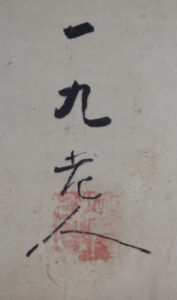 一九老人